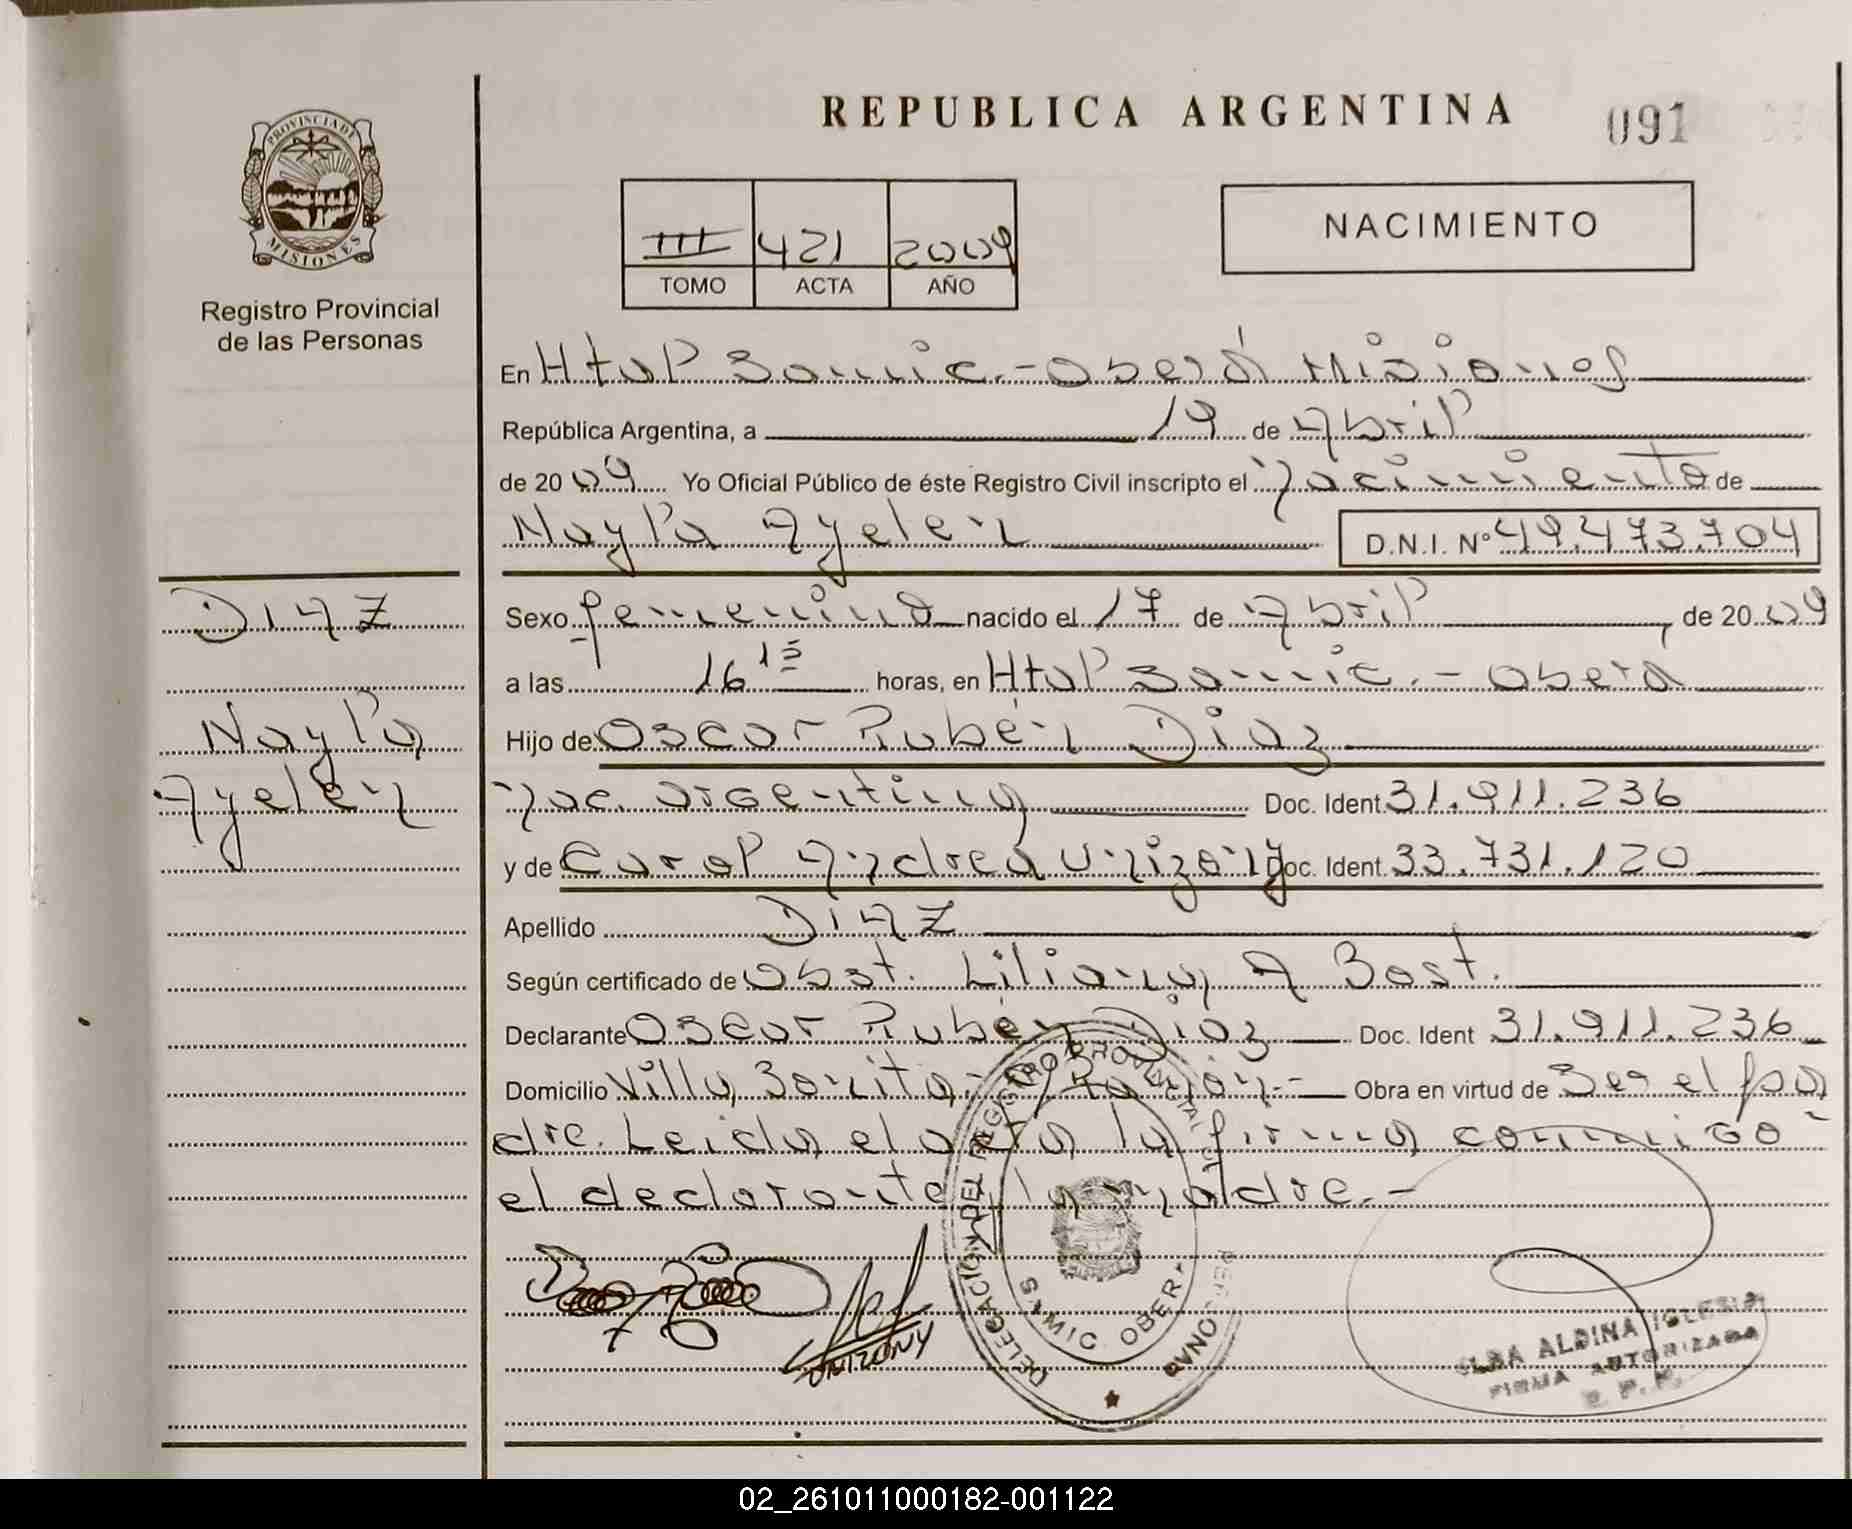 REPUBLICA ARGENTINA
091
PROVINCIA DE
MISIONES
Registro Provincial
de las Personas
III 421 2009
TOMO ACTA AÑO
NACIMIENTO
En Htal Samic.-Oberá Misiones
República Argentina, a 19 de Abril
de 2009 Yo Oficial Público de éste Registro Civil inscripto el nacimiento de
Nayla Ayelen D.N.I. Nº 49.473.704
DIAZ
Nayla
Ayelén
Sexo femenino nacido el 17 de Abril, de 2009
a las 16 15 horas, en Htal Samic.- Oberá
Hijo de Oscar Rubén Diaz
nac. argentina Doc. Ident. 31.911.236
y de Carol Andrea Unizony Doc. Ident. 33.731.120
Apellido DIAZ
Según certificado de Obst. Liliana A Bast.
Declarante Oscar Rubén Diaz Doc. Ident 31.911.236
Domicilio Villa Bonita.- Obra en virtud de Ser el pa
dre. Leida el acta la firma conmigo
el declarante y la madre.-
UNIZONY
DELEGACION DEL REGISTRO PROVINCIAL DE PERSONAS
SAMIC OBERA
ELBA ALDINA IGLESIA
FIRMA AUTORIZADA
R. P. P.
02_261011000182-001122